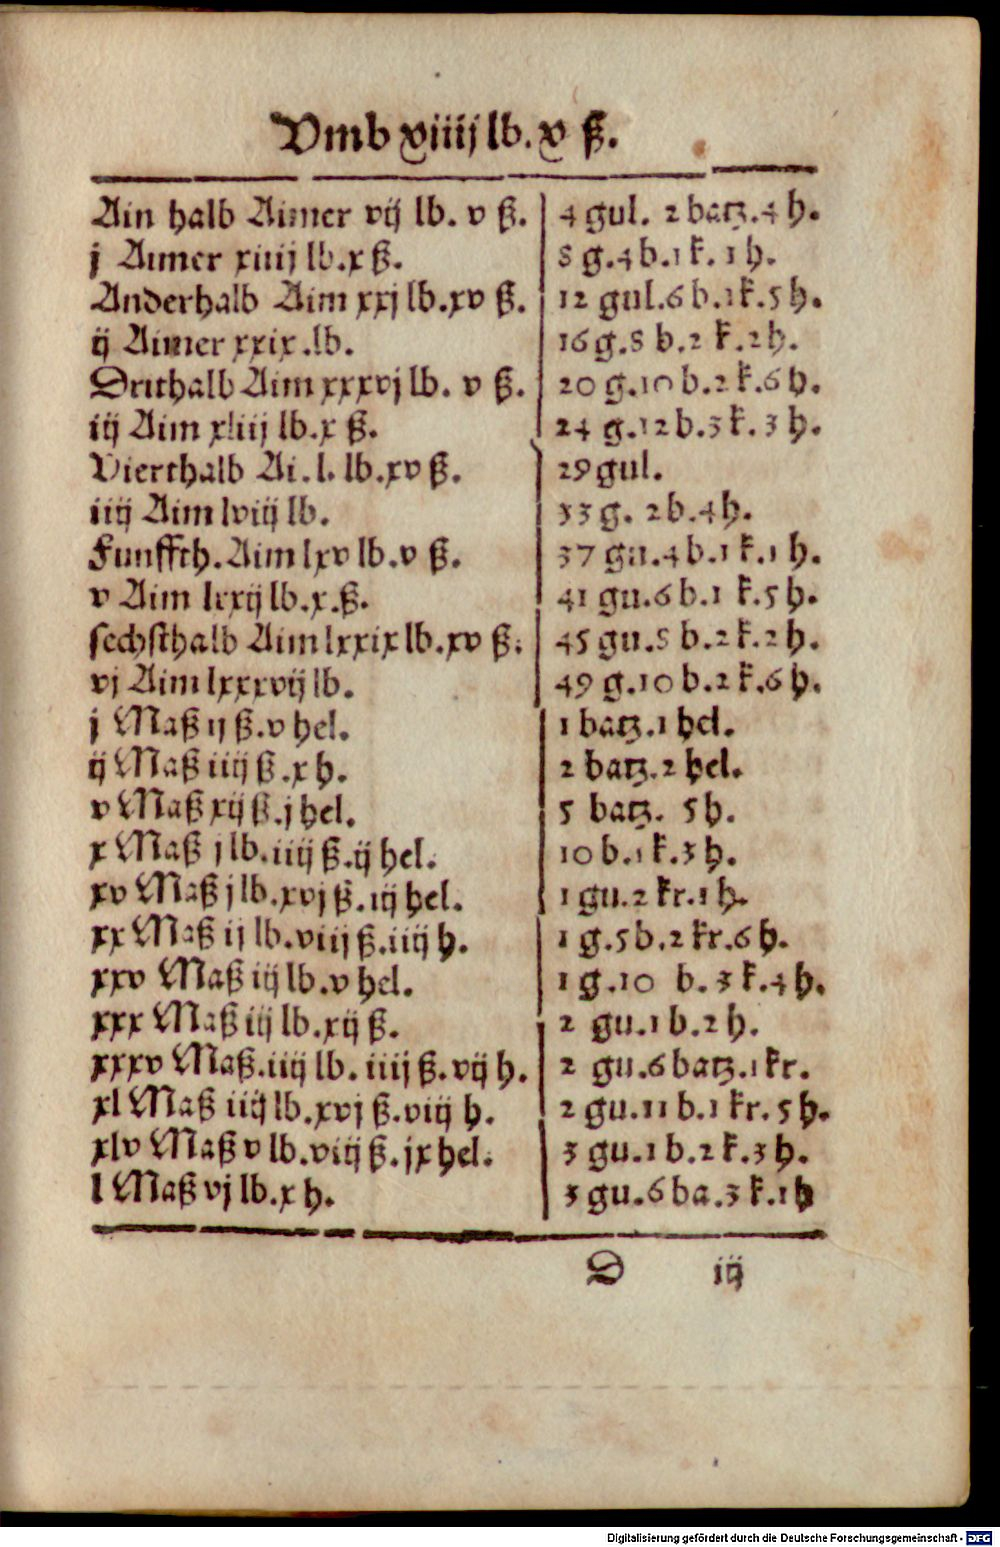 Vmb xiiij lb. x ß.
Ain halb Aimer vij lb. v ß. 4 gul. 2 batz. 4 h.
j Aimer xiiij lb. x ß. 8 g. 4 b. 1 k. 1 h.
Anderhalb Aim xxj lb. xv ß. 12 gul. 6 b. 1 k. 5 h.
ij Aimer xxix. lb. 16 g. 8 b. 2 k. 2 h.
Drithalb Aim xxxvj lb. v ß. 20 g. 10 b. 2 k. 6 h.
iij Aim xliij lb. x ß. 24 g. 12 b. 3 k. 3 h.
Vierthalb Ai. l. lb. xv ß. 29 gul.
iiij Aim lviij lb. 33 g. 2 b. 4 h.
Funffth. Aim lxv lb. v ß. 37 gu. 4 b. 1 k. 1 h.
v Aim lxxij lb. x. ß. 41 gu. 6 b. 1 k. 5 h.
sechsthalb Aim lxxix lb. xv ß. 45 gu. 8 b. 2 k. 2 h.
vj Aim lxxxvij lb. 49 g. 10 b. 2 k. 6 h.
j Maß ij ß. v hel. 1 batz. 1 hel.
ij Maß iiij ß. x h. 2 batz. 2 hel.
v Maß xij ß. j hel. 5 batz. 5 h.
x Maß j lb. iiij ß. ij hel. 10 b. 1 k. 3 h.
xv Maß j lb. xvj ß. iij hel. 1 gu. 2 kr. 1 h.
xx Maß ij lb. viij ß. iiij h. 1 g. 5 b. 2 kr. 6 h.
xxv Maß iij lb. v hel. 1 g. 10 b. 3 k. 4 h.
xxx Maß iij lb. xij ß. 2 gu. 1 b. 2 h.
xxxv Maß. iiij lb. iiij ß. vij h. 2 gu. 6 batz. 1 kr.
xl Maß iiij lb. xvj ß. viij h. 2 gu. 11 b. 1 kr. 5 h.
xlv Maß v lb. viij ß. jx hel. 3 gu. 1 b. 2 k. 3 h.
l Maß vj lb. x h. 3 gu. 6 ba. 3 k. 1 h
D iij
Digitalisierung gefördert durch die Deutsche Forschungsgemeinschaft - DFG